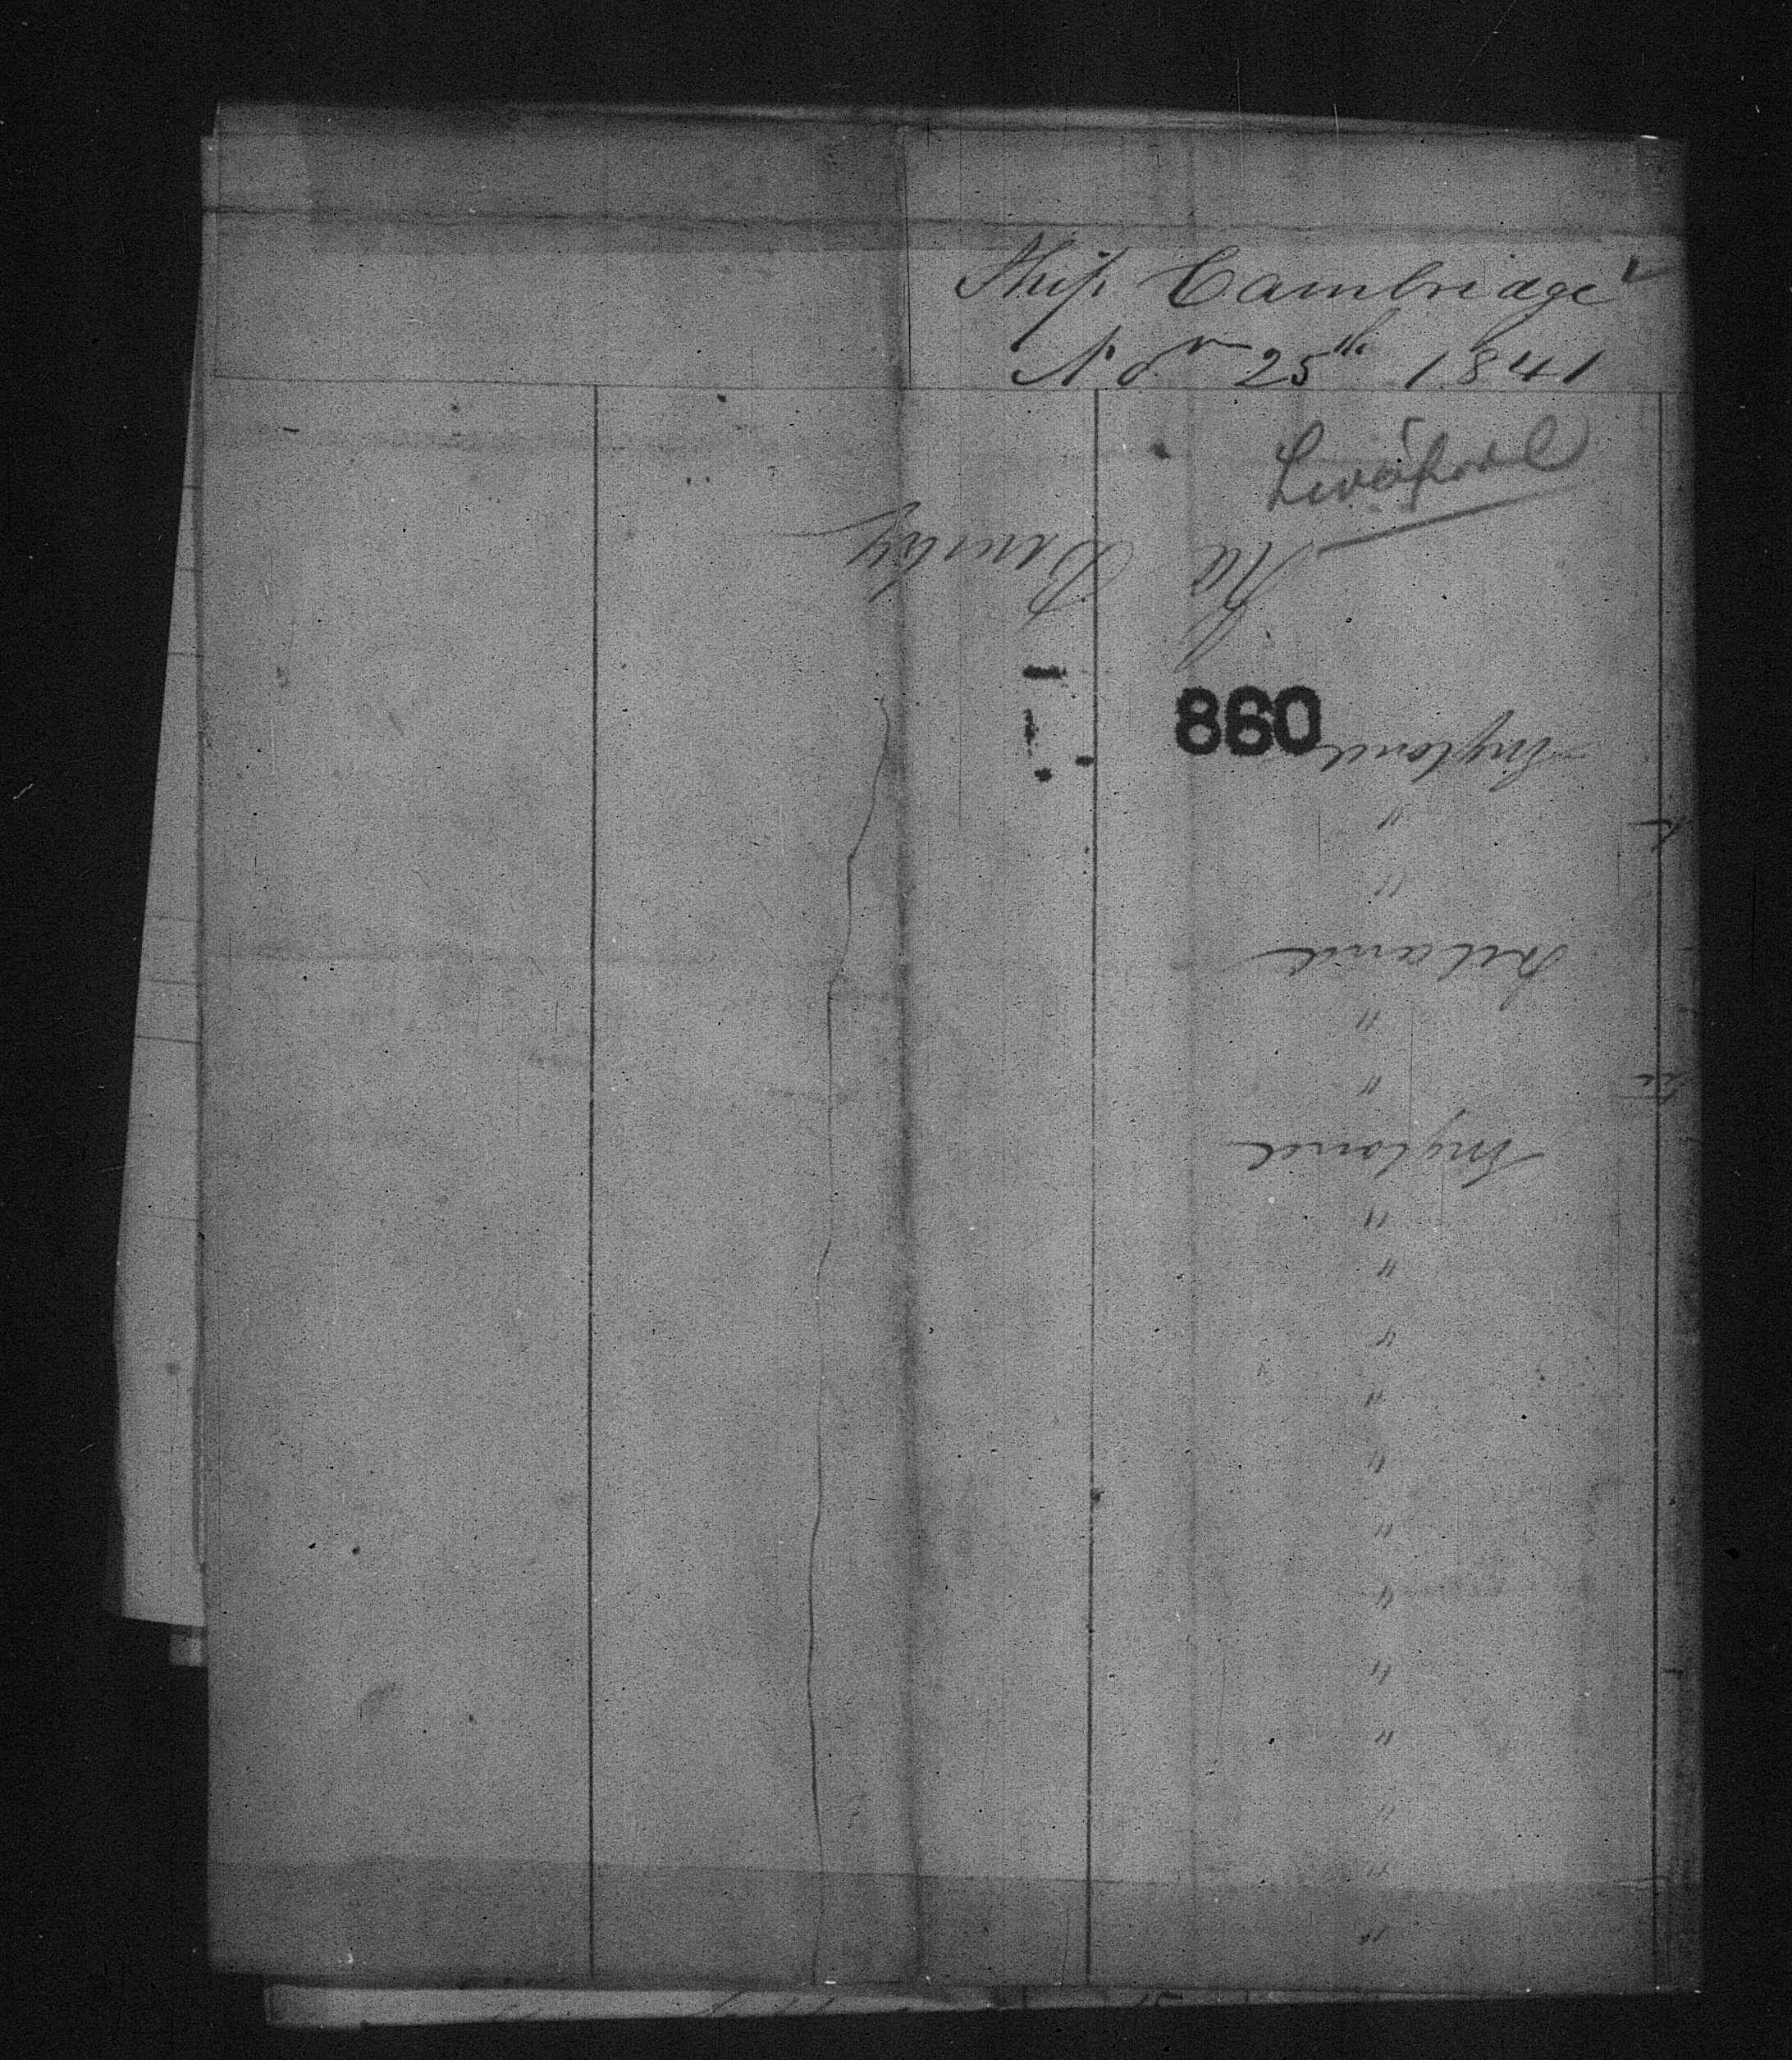 Ship Cambridge
Nov 25th 1841
Liverpool
No
860
England
"
"
Ireland
"
"
England
"
"
"
"
"
"
"
"
"
"
"
"